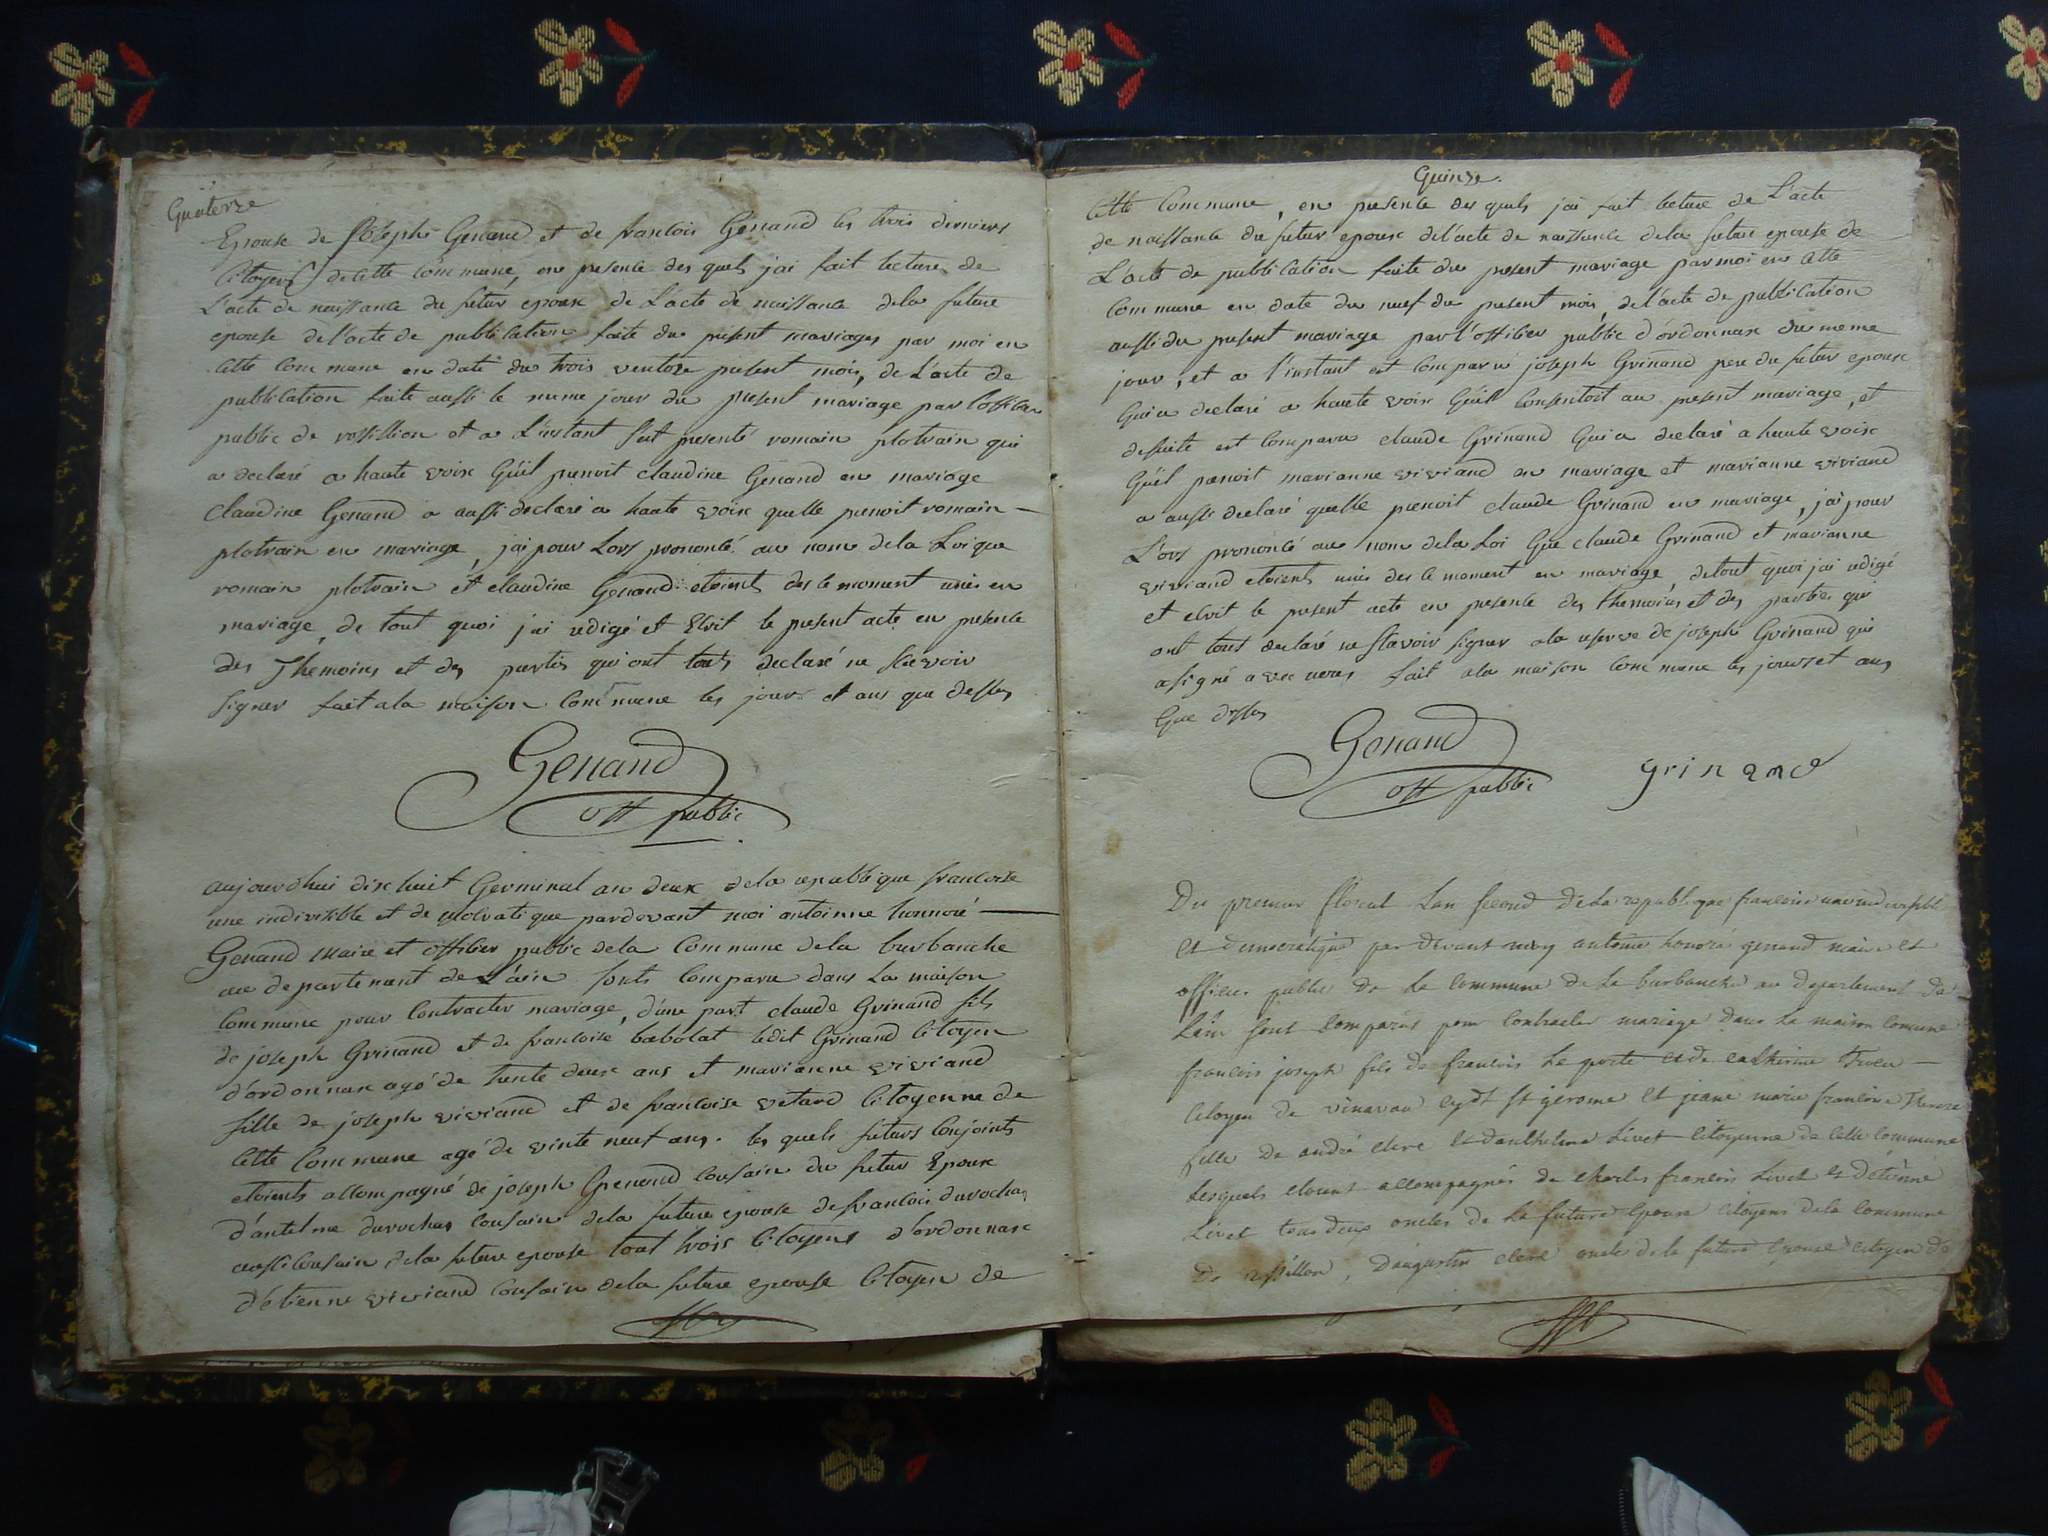 Quatorze
Epouse de Joseph Genand et de francois Genand les trois derniers
Citoyens de cette commune, en presence des quels j'ai fait lecture de
L'acte de naissance du futur epoux de L'acte de naissance dela future
epouse de l'acte de publication faite du present mariage par moi en
cette commune en date du trois ventose present mois, de L'acte de
publication faite aussi le meme jour du present mariage par l'officier
public de rossillion et a L'instant s'est presenté romain plotrain qui
a declaré a haute voix Qu'il prenoit claudine Genand en mariage
Claudine Genand a aussi declaré a haute voix quelle prenoit romain
plotrain en mariage, j'ai pour Lors prononcé au nom dela Loi que
romain plotrain et claudine Genand etoients des le moment unis en
mariage, de tout quoi j'ai redigé et Ecrit le present acte en presence
des Themoins et des parties qui ont touts declaré ne scavoir
signer fait a la maison commune les jours et ans que dessus
Genand
off public
aujourdhui dix huit Germinal an deux dela republique francoise
une indivisible et democratique pardevant moi antoinne honnoré
Genand Maire et officier public dela Commune dela burbanche
au departement de L'ain sonts comparu dans La maison
Commune pour Contracter mariage, d'une part claude Grinand fils
de joseph Grinand et de francoise babolat ledit Grinand Citoyen
d'ordonnax agé de trente deux ans et marianne viviand
fille de joseph viviand et de francoise vetard Citoyenne de
Cette Commune agé de vinte neuf ans. les quels futurs Conjoints
etoients accompagné de joseph Grenand Cousin du futur Epoux
d'antelme durochas cousin dela future epouse de francois durochas
aussi Cousin dela future epouse tout trois Citoyens d'ordonnax
d'etienne viviand cousin dela future epouse Citoyen de
Quinze.
Cette Commune, en presence des quels j'ai fait lecture de L'acte
de naissance du futur epoux de l'acte de naissance dela future epouse de
L'acte de publication faite du present mariage par moi en cette
Commune en date du neuf du present mois, de l'acte de publication
aussi du present mariage par l'officier public d'ordonnax du meme
jour, et a l'instant est comparu joseph Grinand pere du futur epoux
Qui a declaré a haute voix Qu'il Consentoit au present mariage, et
desuite est Comparu claude Grinand Qui a declaré a haute voix
Qu'il prenoit marianne viviand en mariage et marianne viviand
a aussi declaré quelle prenoit claude Grinand en mariage, j'ai pour
Lors prononcé au nom dela Loi Que claude Grinand et marianne
viviand etoients unis des le moment en mariage, de tout quoi j'ai redigé
et ecrit le present acte en presence des themoins et des parties qui
ont touts declaré ne scavoir signer ala reserve de joseph Grinand qui
a signé avec nous fait ala maison Commune les jours et ans
Que dessus
Genand
off public
grinand
Du premier floreal Lan second de La republique francoise une indivisible
et democratique par devant moy antoine honoré genand maire et
officier public de la commune de La burbanche au departement de
Lain sont comparus pour Contracter mariage dans La maison Comune
francois joseph fils de francois Le porte et de catherine
Citoyen de vinavau st gerome et jeane marie francoise
fille de andré clerc et danthelme Livet Citoyenne de Cette Commune
Lesquels etoient accompagnés de charles francois Livet et d'etienne
Livet tous deux oncles de La future Epouse Citoyens dela Commune
de rossillon, d'augustin clerc oncle de la future Epouse Citoyen de